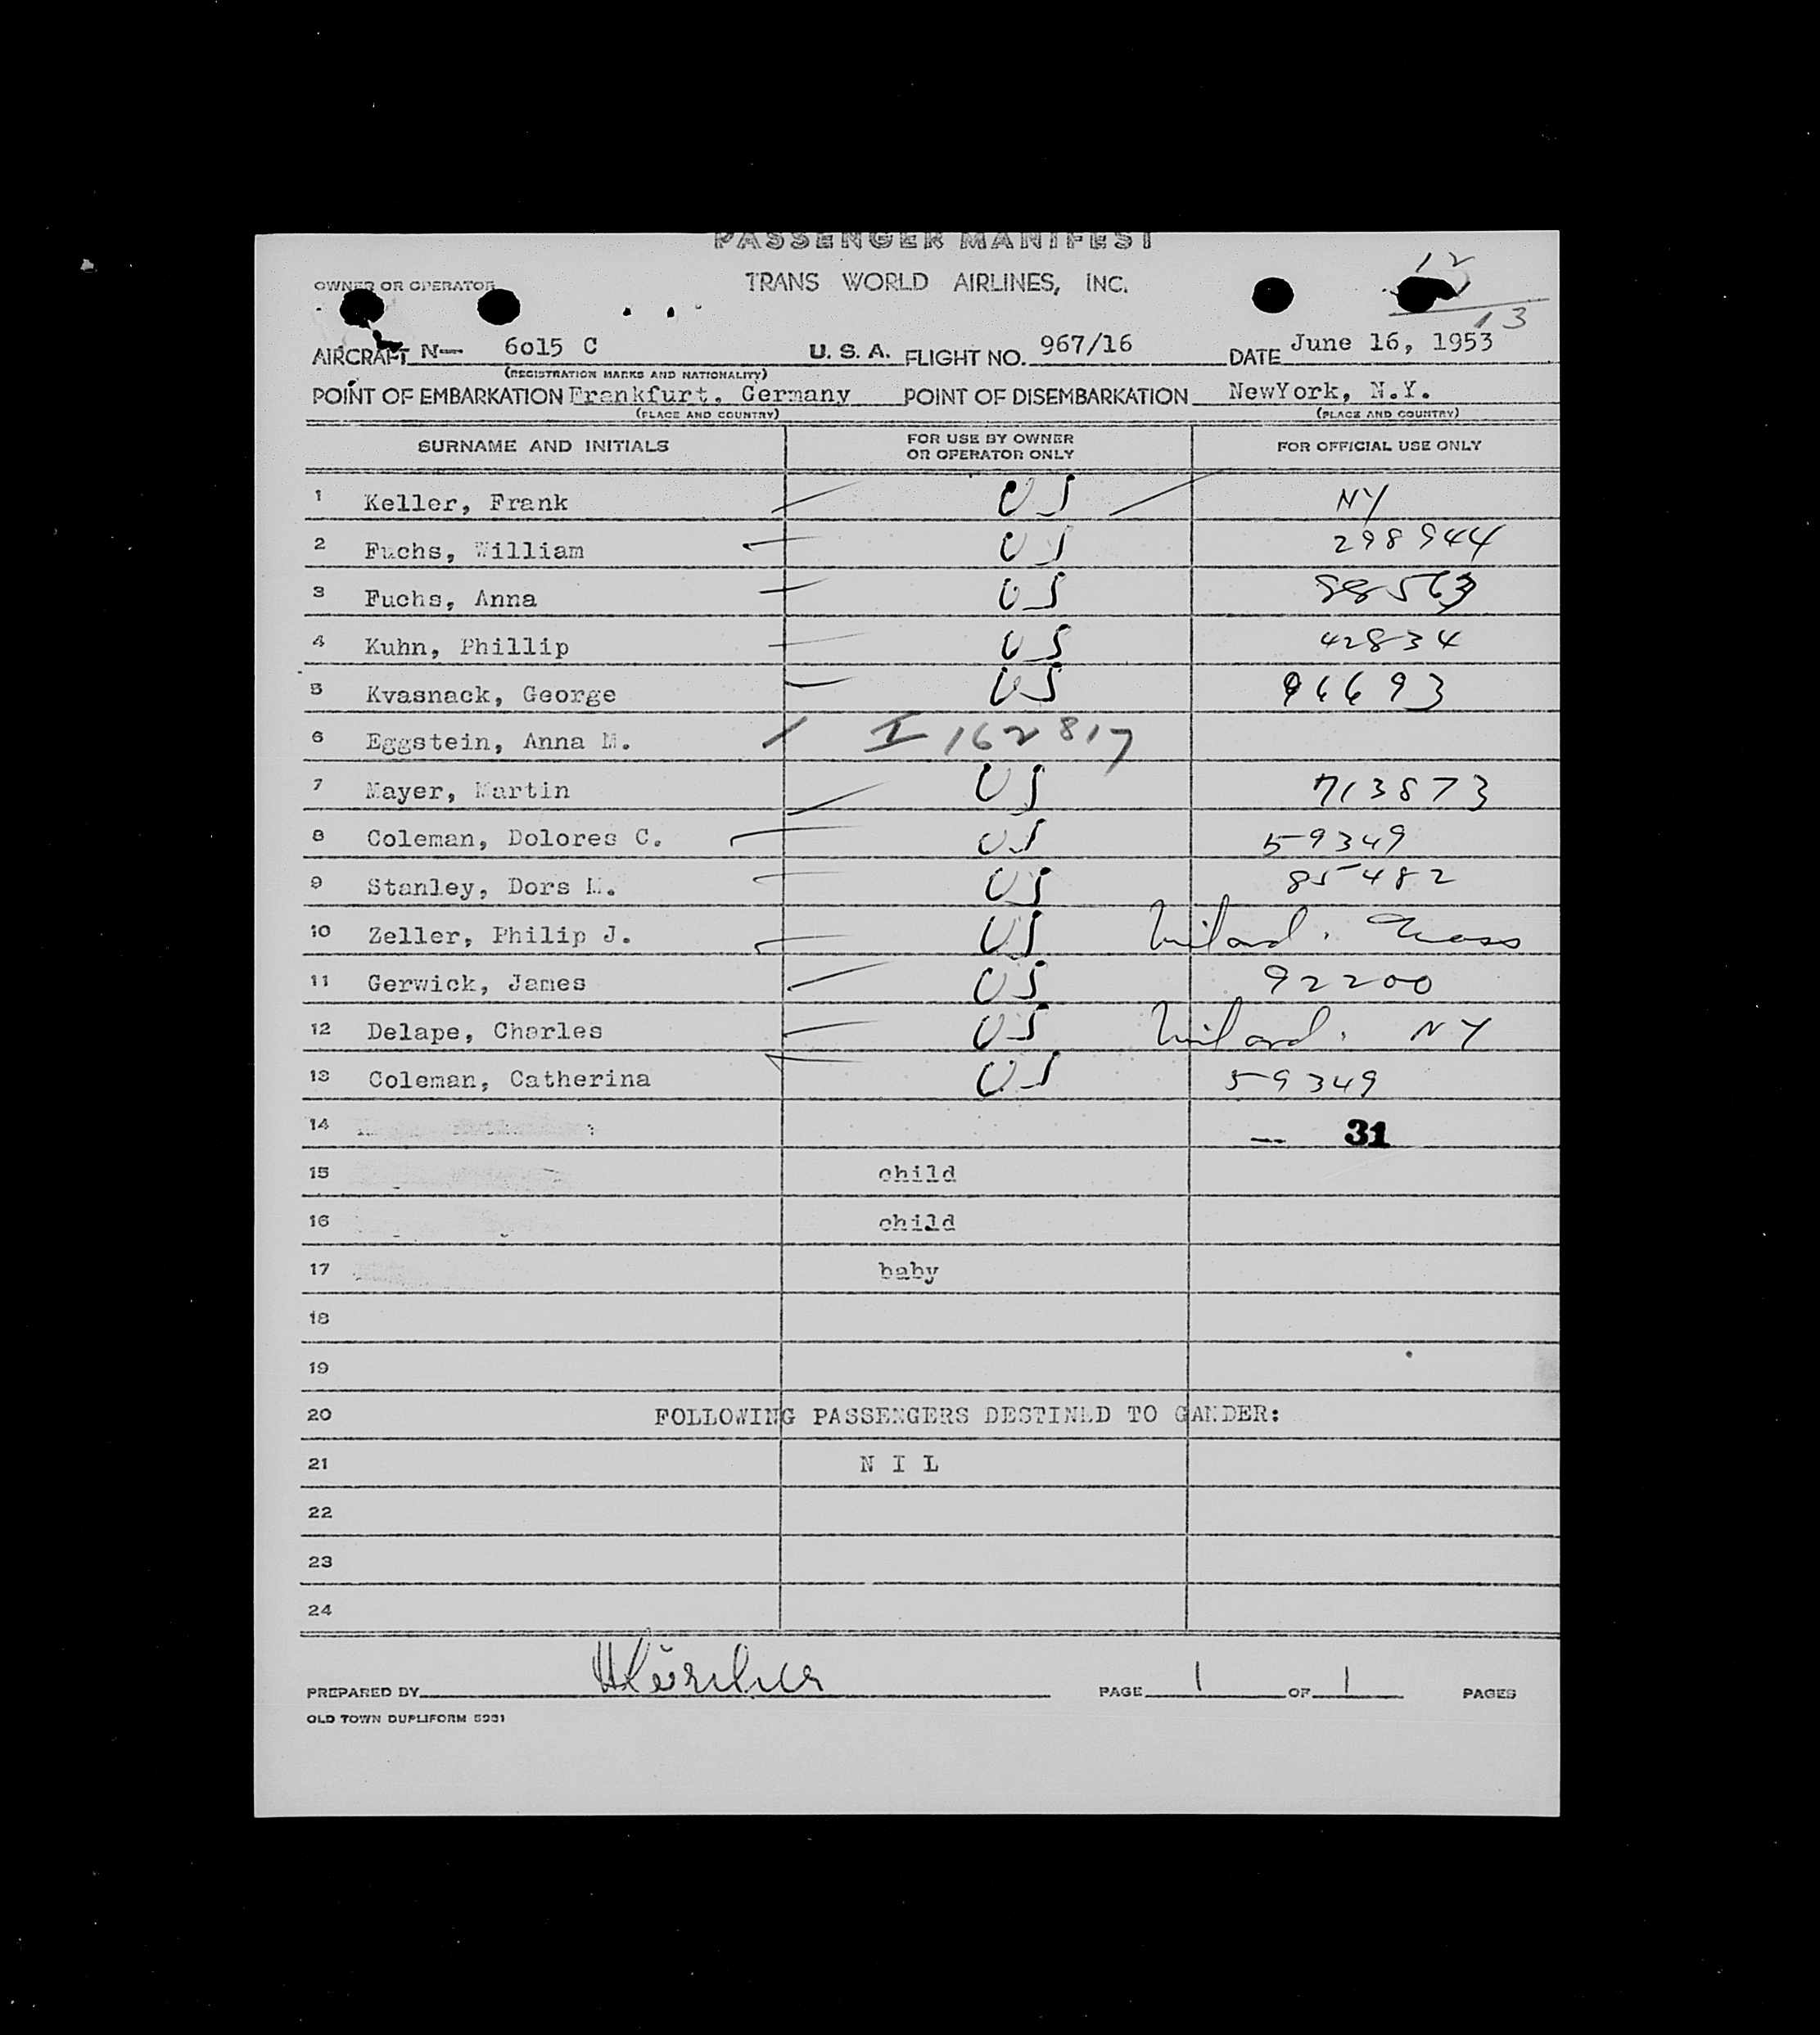 PASSENGER MANIFEST
OWNER OR OPERATOR TRANS WORLD AIRLINES, INC.
12
13
AIRCRAFT N— 6015 C U. S. A. FLIGHT NO. 967/16 DATE June 16, 1953
(REGISTRATION MARKS AND NATIONALITY)
POINT OF EMBARKATION Frankfurt, Germany POINT OF DISEMBARKATION NewYork, N.Y.
(PLACE AND COUNTRY) (PLACE AND COUNTRY)
SURNAME AND INITIALS FOR USE BY OWNER OR OPERATOR ONLY FOR OFFICIAL USE ONLY
1 Keller, Frank US NY
2 Fuchs, William US 298944
3 Fuchs, Anna US
4 Kuhn, Phillip US 42834
5 Kvasnack, George US 96693
6 Eggstein, Anna M. I 162817
7 Mayer, Martin US 713873
8 Coleman, Dolores C. US 59349
9 Stanley, Dors M. US 85482
10 Zeller, Philip J. US Mass
11 Gerwick, James US 92200
12 Delape, Charles US NY
13 Coleman, Catherina US 59349
14 — 31
15 child
16 child
17 baby
18
19
20 FOLLOWING PASSENGERS DESTINED TO GANDER:
21 N I L
22
23
24
PREPARED BY PAGE 1 OF 1 PAGES
OLD TOWN DUPLIFORM 5931